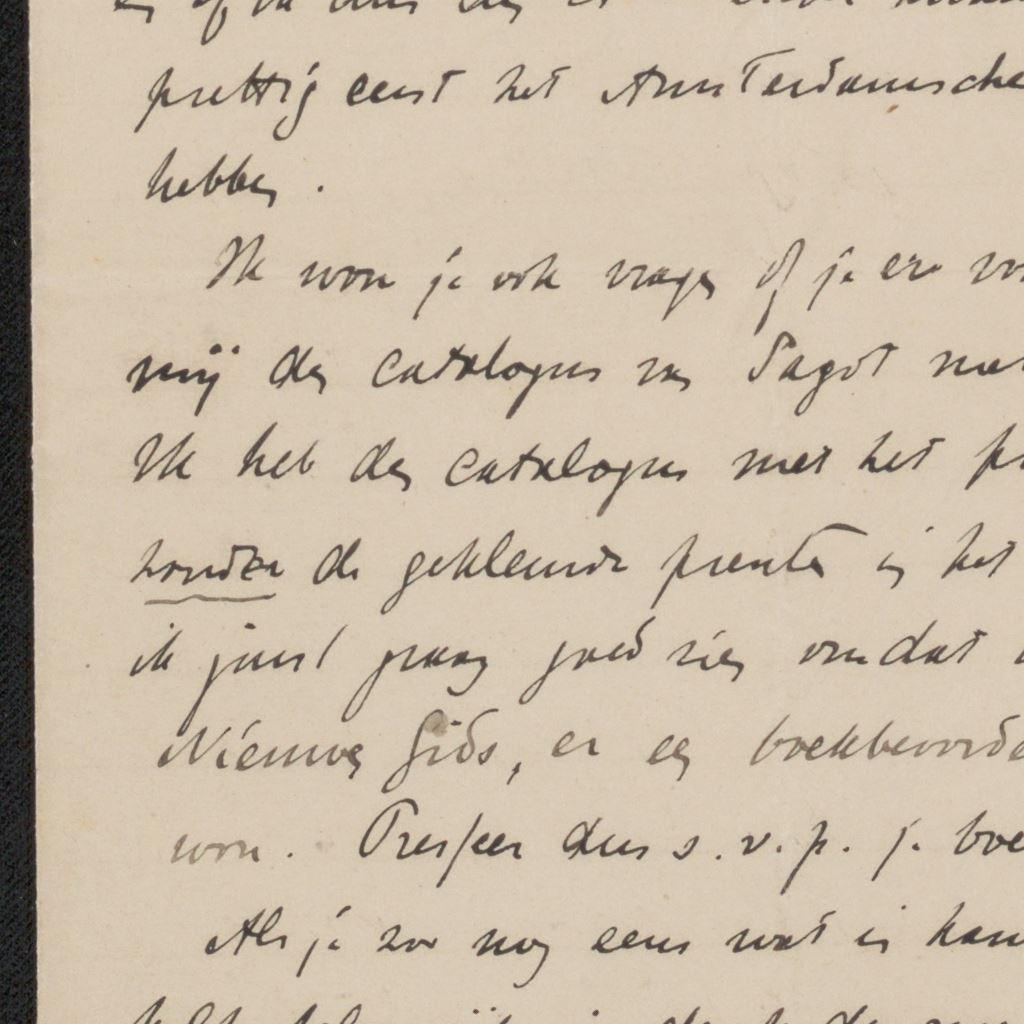 prettig eerst het Amsterdamsche
hebben.
Ik wou je ook vragen of je er vo
mij den catalogus van Sagot
Ik heb den catalogus met het pr
zonder de gekleurde prenten in het
ik juist graag goed zien omdat
Nieuwe Gids, er een boekbeoorde
wou. Presseer dus s.v.p. je boe
Als je zoo nog eens wat in han